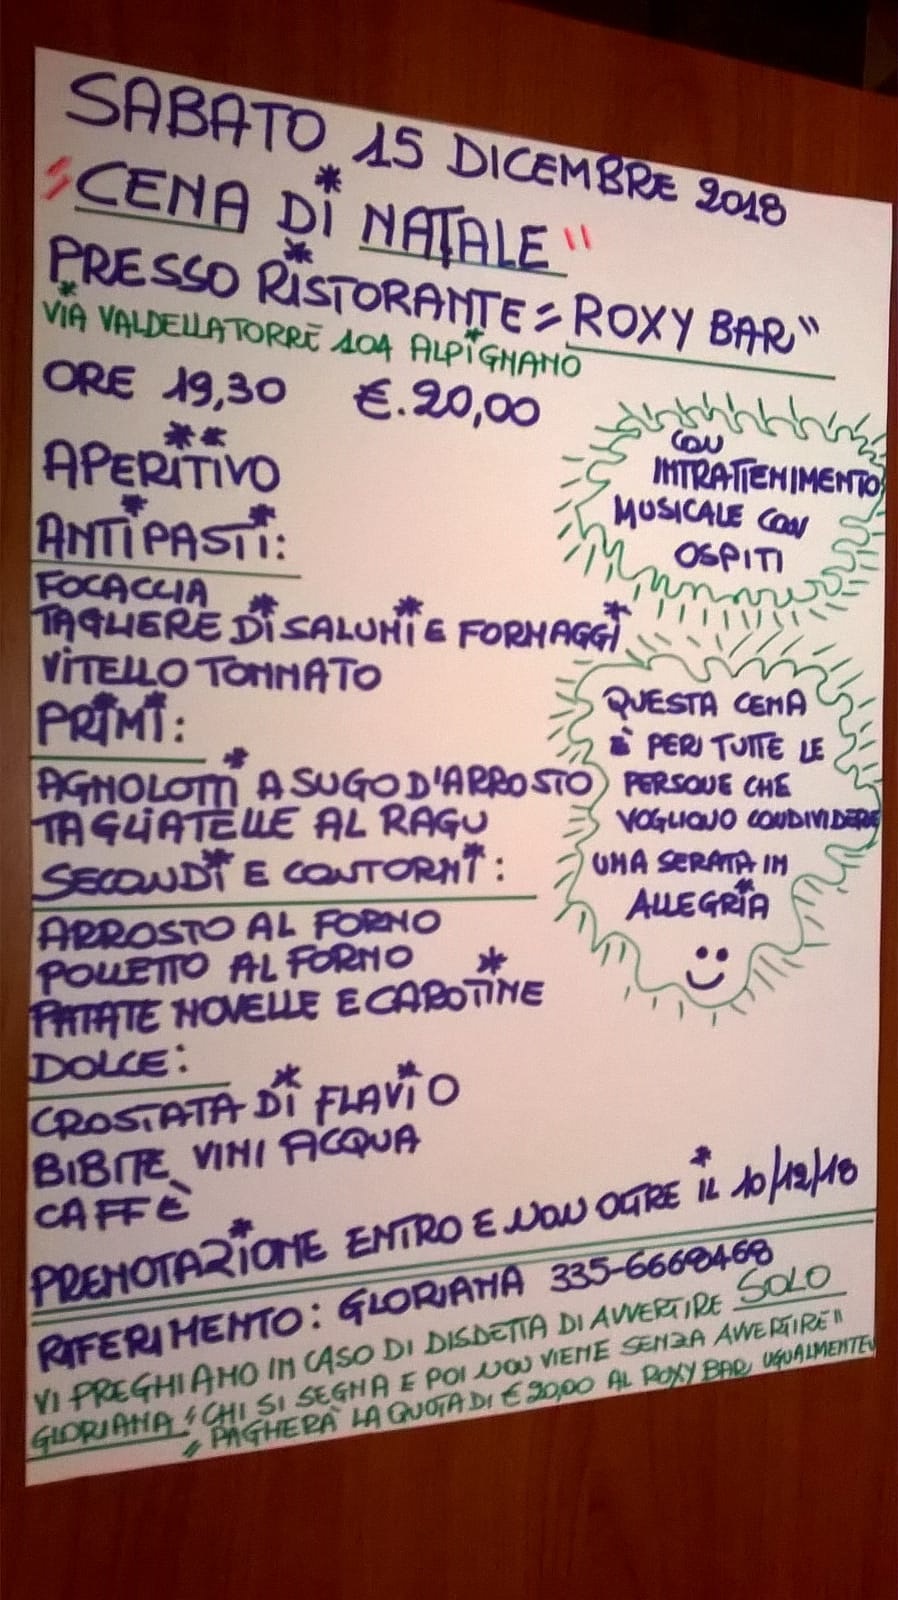 SABATO 15 DICEMBRE 2018
"CENA DI NATALE"
PRESSO RISTORANTE "ROXY BAR"
VIA VALDELLATORRE 104 ALPIGNANO
ORE 19,30 €.20,00
APERITIVO
ANTIPASTI:
FOCACCIA
TAGLIERE DI SALUMI E FORMAGGI
VITELLO TONNATO
PRIMI:
AGNOLOTTI A SUGO D'ARROSTO
TAGLIATELLE AL RAGU
SECONDI E CONTORNI:
ARROSTO AL FORNO
POLLETTO AL FORNO
PATATE NOVELLE E CAROTINE
DOLCE:
CROSTATA DI FLAVIO
BIBITE VINI ACQUA
CAFFÈ
CON
INTRATTENIMENTO
MUSICALE CON
OSPITI
QUESTA CENA
È PER TUTTE LE
PERSONE CHE
VOGLIONO CONDIVIDERE
UNA SERATA IN
ALLEGRIA
PRENOTAZIONE ENTRO E NON OLTRE IL 10/12/18
RIFERIMENTO: GLORIANA 335-6668468
VI PREGHIAMO IN CASO DI DISDETTA DI AVVERTIRE SOLO
GLORIANA "CHI SI SEGNA E POI NON VIENE SENZA AVVERTIRE"
"PAGHERÀ LA QUOTA DI € 20,00 AL ROXY BAR UGUALMENTE"